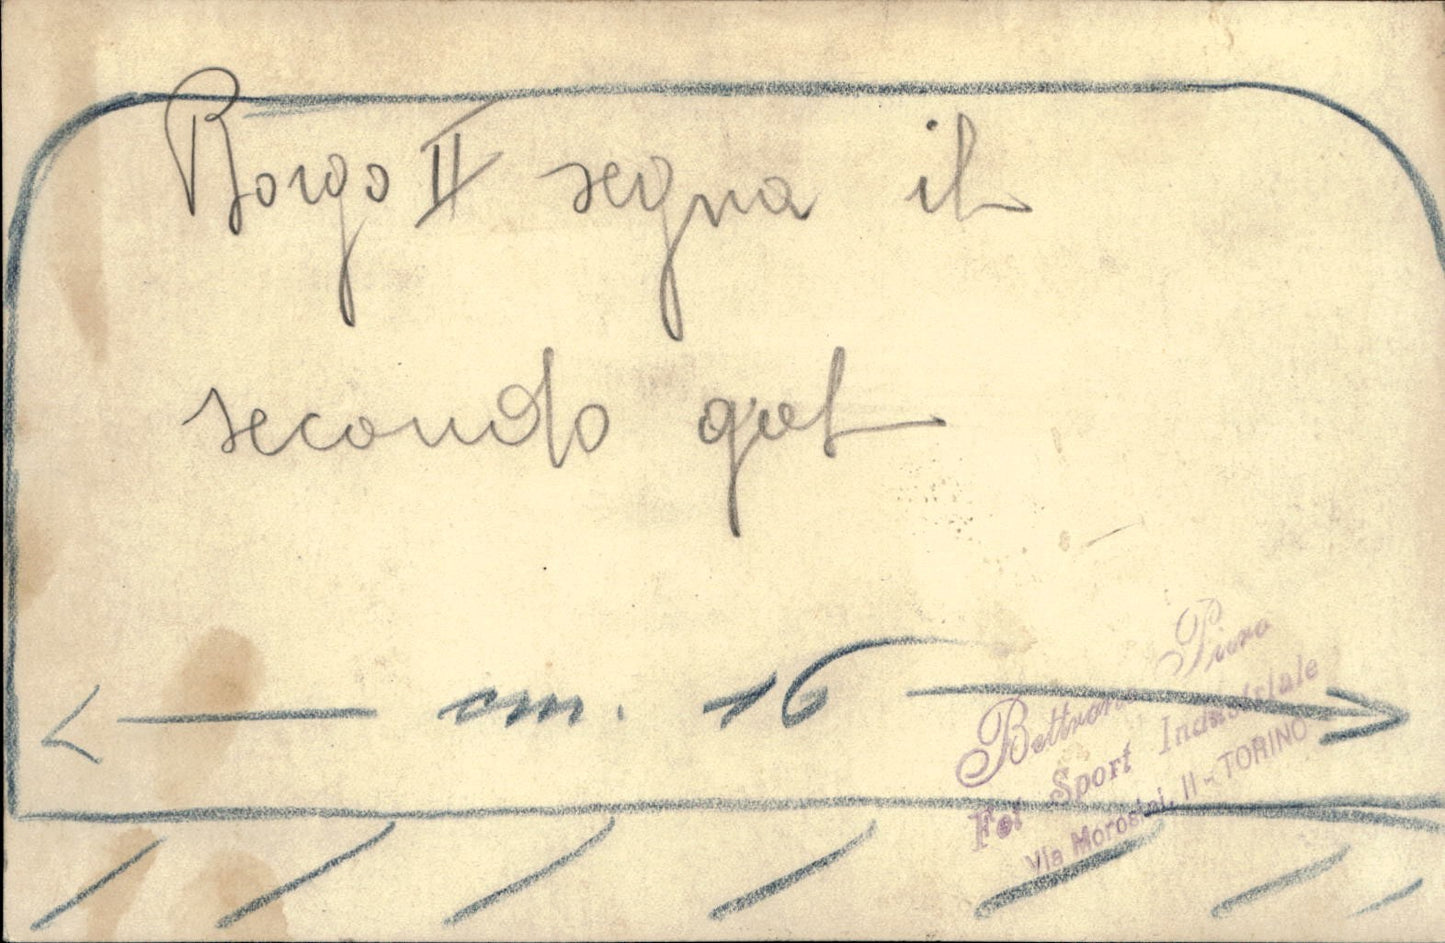 Borgo II segna il
secondo goal
cm. 16
Piero
Fot Sport Industriale
Via Morosini, 11 - TORINO